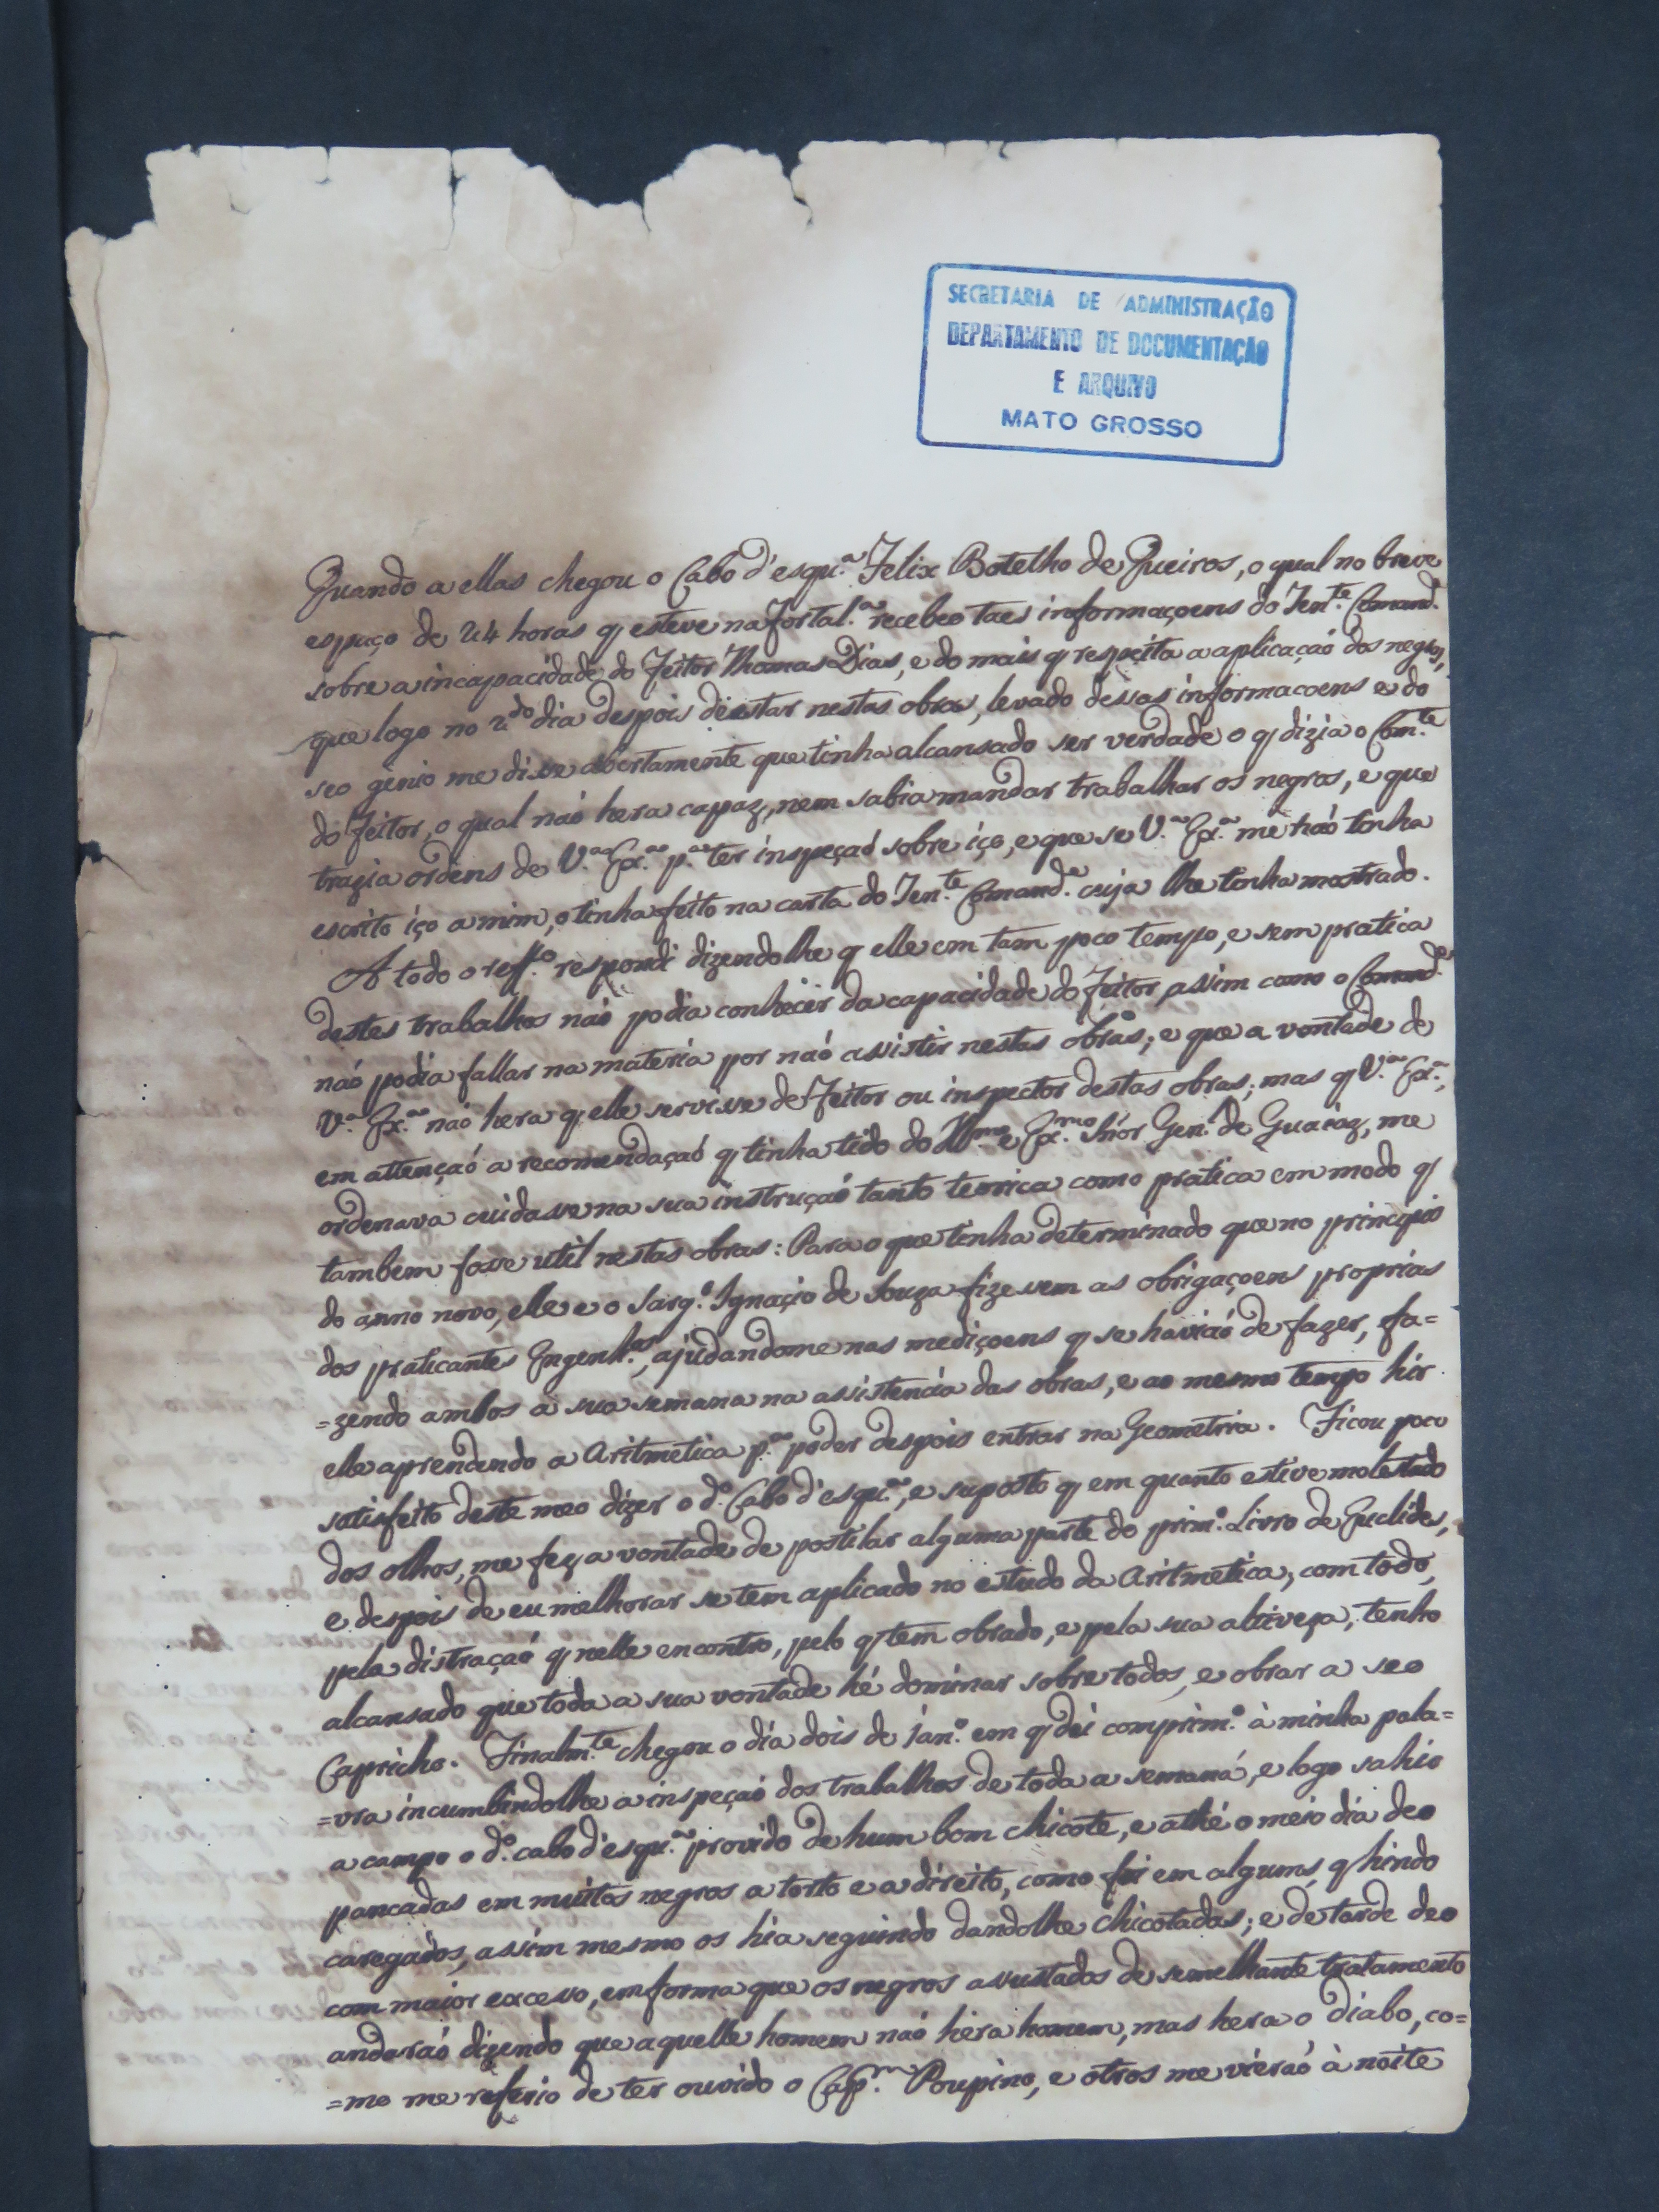 SECRETARIA DE ADMINISTRAÇÃO
DEPARTAMENTO DE DOCUMENTAÇÃO
E ARQUIVO
MATO GROSSO
Quando a ellas chegou o Cabo d'esqu.ª Felix Botelho de Queiros, o qual no breve
espaço de 24 horas q esteve na Fortal.ª recebeo taes informaçoens do Ten.te Comand.e
sobre a incapacidade do Feitor Thomas Dias, e do mais q respeita a aplicaçaó dos negros,
que logo no 2.do dia despois de estar nestas obras, levado dessas informacoens e do
seo genio me disse abertamente que tinha alcansado ser verdade o q dizia o Com.te
do Feitor, o qual naó hera capaz, nem sabia mandar trabalhar os negros, e que
trazia ordens de V.ª Ex.ª p.ª ter inspeçaó sobre iço, e que se V.ª Ex.ª me naó tinha
escrito iço a mim, o tinha feito na carta do Ten.te Comand.e cuja lhe tinha mostrado.
A todo o reff.º respondi dizendolhe q elle em tam poco tempo, e sem pratica
destes trabalhos naó podia conhecer da capacidade do Feitor, assim como o Comand.e
naó podia fallar na materia por naó assistir nestas obras; e que a vontade de
V.ª Ex.ª naó hera q elle servisse de Feitor ou inspector destas obras; mas q V.ª Ex.ª,
em attençaó a recomendaçaó q tinha tido do Ill.mo e Ex.mo Snór Gen.l de Guaiaz, me
ordenava cuidasse na sua instruçaó tanto teorica como pratica em modo q
tambem fosse util nestas obras: Para o que tinha determinado que no principio
do anno novo, elle e o Sarg.º Ignaçio de Souza fizessem as obrigaçoens proprias
dos praticantes Engenh.os, ajudandome nas mediçoens q se haviaó de fazer, fa=
=zendo ambos a sua semana na assistencia das obras, e ao mesmo tempo hir
elle aprendendo a Aritmetica p.ª poder despois entrar na Geometria. Ficou poco
satisfeito deste meo dizer o d.º Cabo d'esqu.ª, e suposto q em quanto estive molestado
dos olhos, me fez a vontade de postilar alguma parte do prim.º Livro de Euclides,
e despois de eu melhorar se tem aplicado no estudo da Aritmetica; com todo,
pela distraçaó q nelle encontro, pelo q tem obrado, e pela sua altiveza, tenho
alcansado que toda a sua vontade hé dominar sobre todos, e obrar a seo
Capricho. Finalm.te chegou o dia dois de Jan.º em q dei comprim.º à minha pala=
=vra incumbindolhe a inspeçaó dos trabalhos de toda a semana, e logo sahio
a campo o d.º cabo d'esqu.ª provido de hum bom chicote, e athé o meio dia deo
pancadas em muitos negros a torto e a direito, como foi em alguns, q hindo
caregados, assim mesmo os hia seguindo dandolhe chicotadas; e de tarde deo
com maior excesso, em forma que os negros assustados de semelhante tratamento
andaraó dizendo que aquelle homem naó hera homem, mas hera o diabo, co=
=mo me referio de ter ouvido o Cap.m Poupino, e otros me vieraó à noite